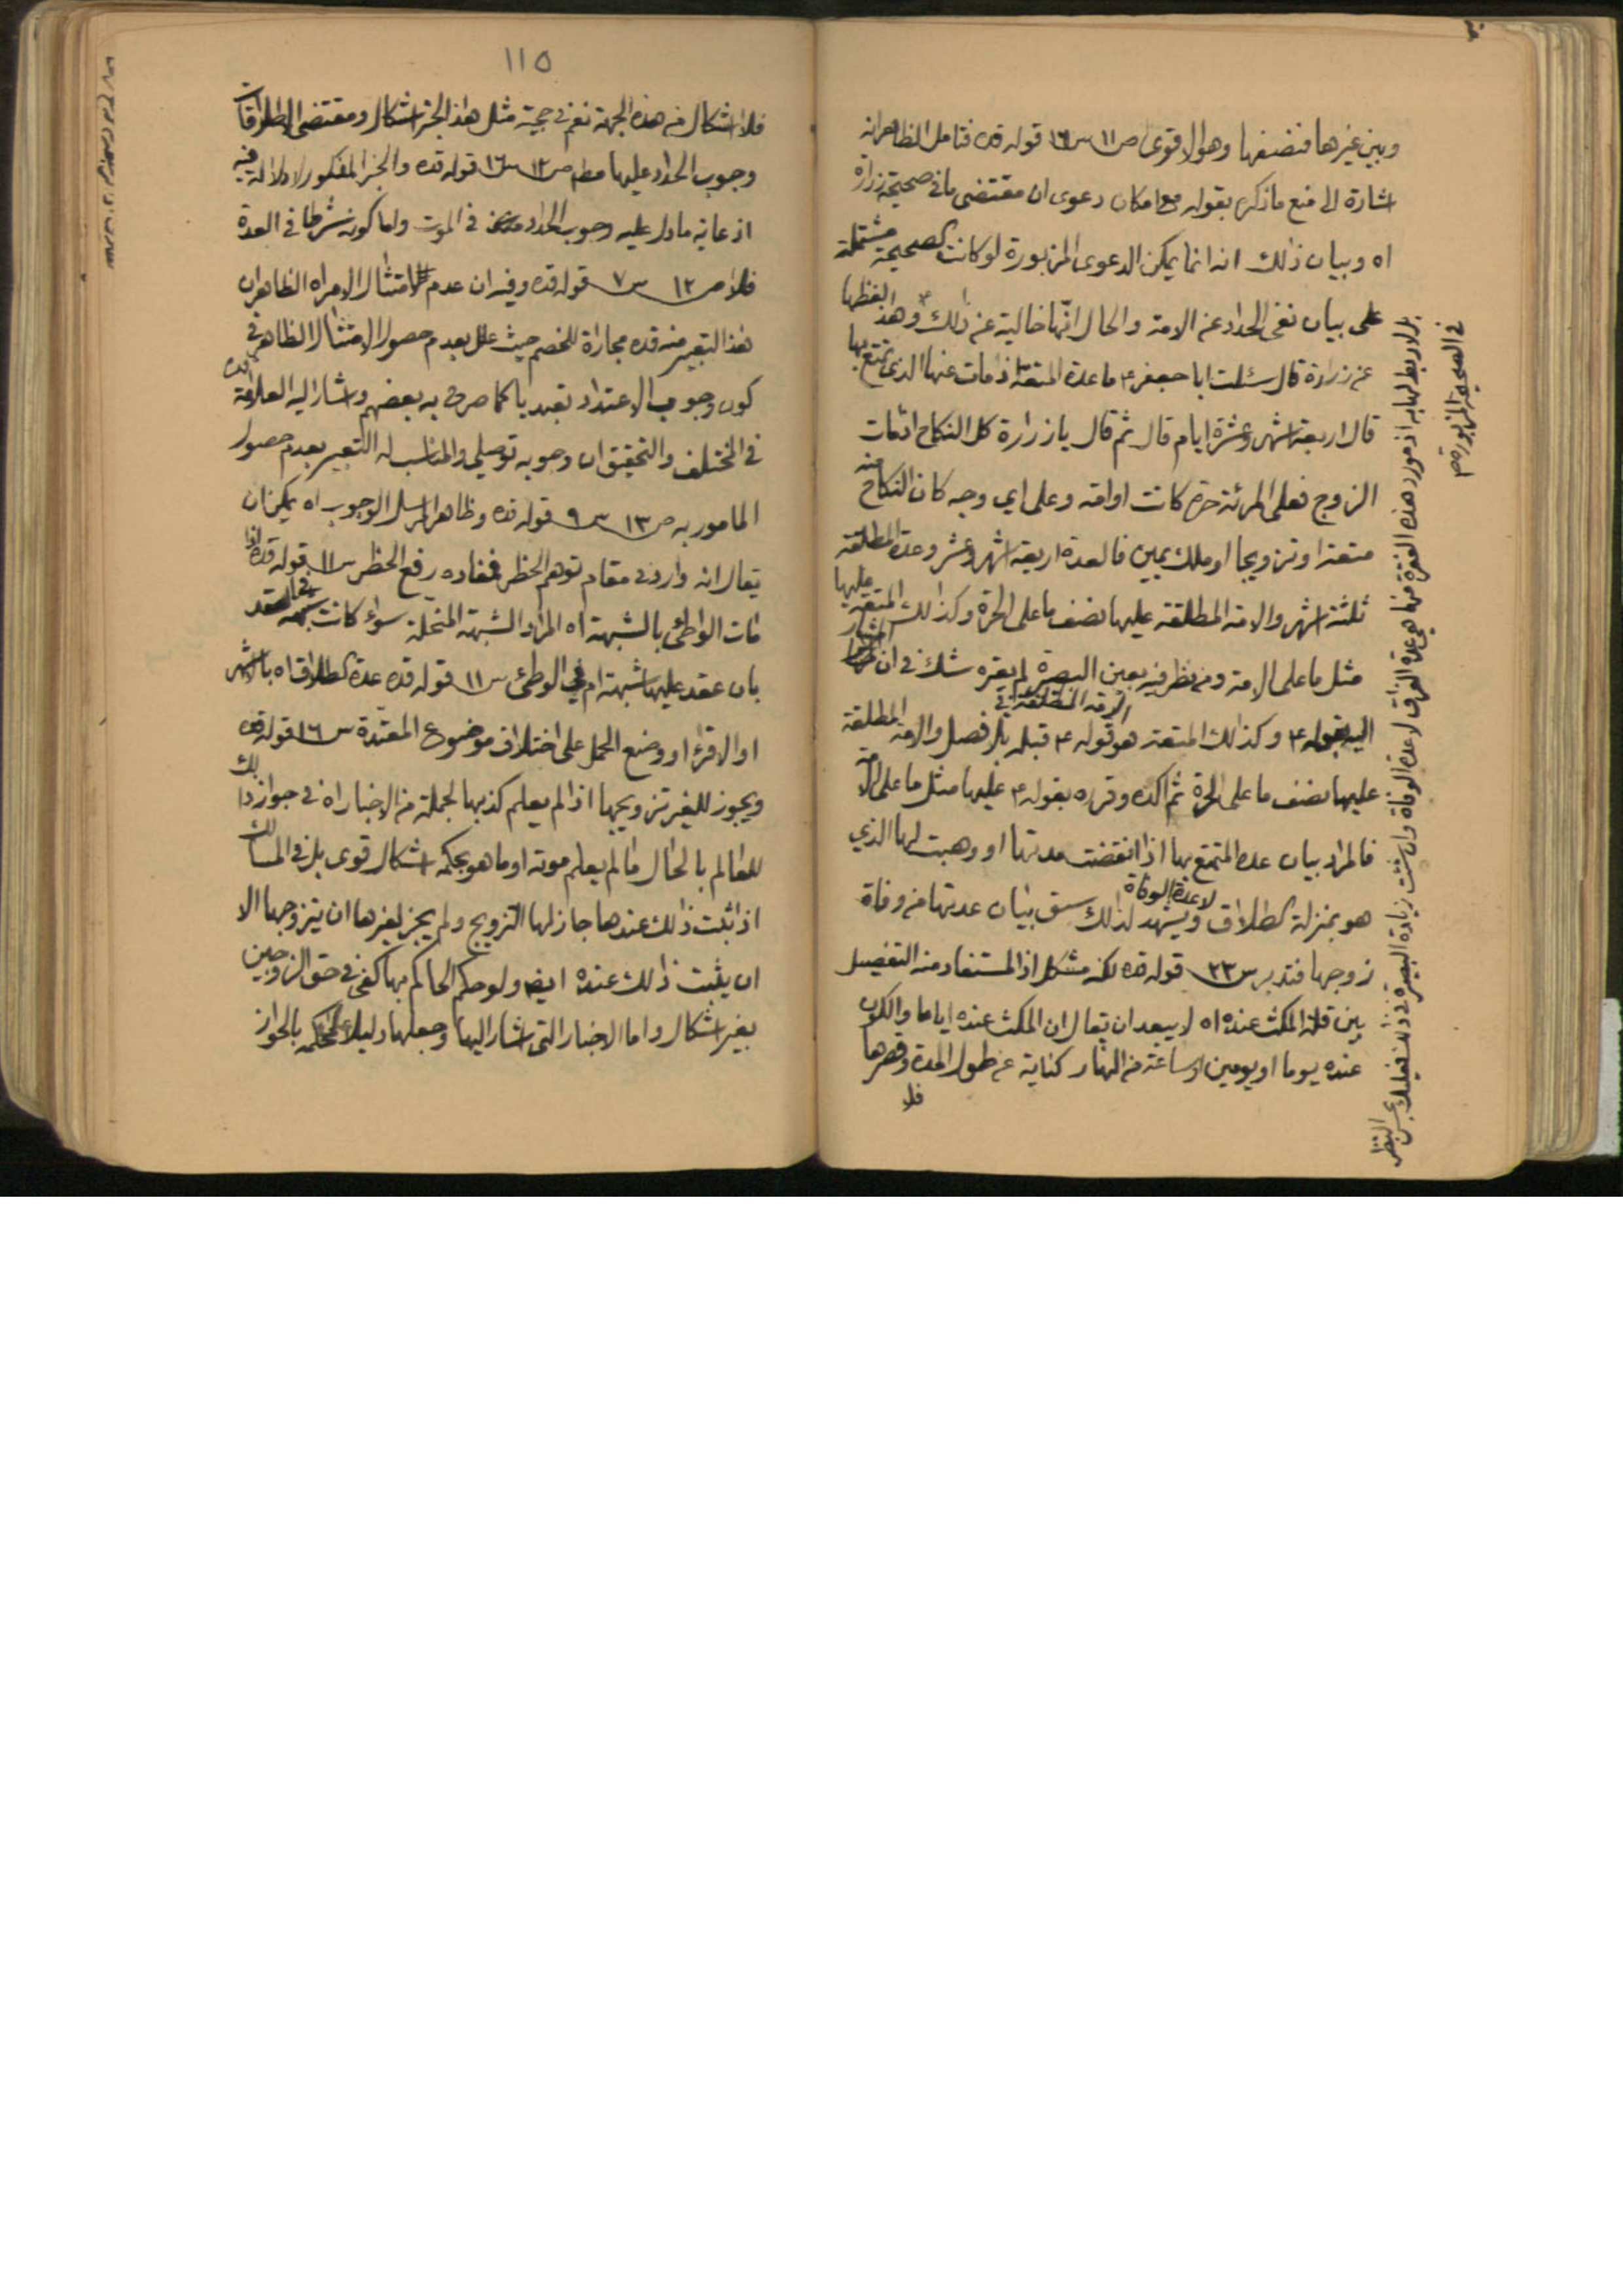 وبين غيرها فنصفها وهو الاقوى ص ١١ س ١٦ قوله قده فتامل الظاهر انه
اشارة الى منع ما ذكره بقوله مع امكان دعوى ان مقتضى ما في صحيحة زرارة
اه وبيان ذلك انه انما يمكن الدعوى المزبورة لو كانت الصحيحة مشتملة
على بيان نفى الحداد عن الامة والحال انها خالية عن ذلك وهذا لفظها
عن زرارة قال سئلت ابا جعفر ع ما عدة المتعة اذا مات عنها الذى تمتع بها
قال اربعة اشهر وعشرة ايام قال ثم قال يا زرارة كل النكاح اذا مات
الزوج فعلى المرئة حرة كانت او امة وعلى اي وجه كان النكاح منه
متعة او تزويجا او ملك يمين فالعدة اربعة اشهر وعشر وعدة المطلقة
ثلثة اشهر والامة المطلقة عليها نصف ما على الحرة وكذلك المتعة عليها
مثل ما على الامة ومن نظر فيه بعين البصيرة لم يعتره شك في ان المشار
اليه بقوله ع وكذلك المتعة هو قوله ع قبله بلا فصل والامة المطلقة
عليها نصف ما على الحرة ثم اكده وقرره بقوله ع عليها مثل ما على الامة
فالمراد بيان عدة المتمتع بها اذا انقضت مدتها او وهبت لها الذي
هو بمنزلة الطلاق لا عدة الوفاة ويشهد لذلك سبق بيان عدتها من وفاة
زوجها فتدبر س ٢٣ قوله قده لكنه مشكل اذ المستفاد منه التفصيل
بين قلة المكث عنده اه لا يبعد ان يقال ان المكث عنده اياما والكون
عنده يوما او يومين او ساعة من النهار كناية عن طول المدة وقصرها
فلا
بل لا ربط لها به اذ مورد هذه الفقرة منها هى عدة الفراق لا عدة الوفاة وان شئت زيادة البصيرة في ذلك فعليك بحسن النظر
في الصحيحة المزبورة
١١٥
فلا اشكال من هذه الجهة نعم في حجية مثل هذا الخبر اشكال ومقتضى الاطلاقات
وجوب الحداد عليها مطم ص ١٢ س ١٦ قوله قده والخبر المذكور لا دلالة فيه
اذ غاية ما دل عليه وجوب الحداد في الموت واما كونه شرطا في العدة
فلا ص ١٢ س ٧ قوله قده وفيه ان عدم الامتثال للامر اه الظاهر ان
هذا التعبير منه قده مجاراة للخصم حيث علل بعدم حصول الامتثال الظاهر في
كون وجوب الاعتداد تعبديا كما صرح به بعضهم واشار اليه العلامة قده
في المختلف والتحقيق ان وجوبه توصلي والمناسب له التعبير بعدم حصول
المامور به ص ١٣ س ٩ قوله قده وظاهر المرسل الوجوب اه يمكن ان
يقال انه وارد في مقام توهم الحظر فمفاده رفع الحظر س ١١ قوله قده اذا
مات الواطئ بالشبهة اه المراد الشبهة المنحلة سواء كانت في العقد
بان عقد عليها شبهة ام في الوطئ س ١١ قوله قده عدة الطلاق اه بالاشهر
او الاقراء او وضع الحمل على اختلاف موضوع المعتدة س ١٦ قوله قده
ويجوز للغير تزويجها اذا لم يعلم كذبها لجملة من الاخبار اه في جواز ذلك
للعالم بالحال ما لم يعلم موته او ما هو بحكمه اشكال قوى بل في المسالك
اذا ثبت ذلك عندها جاز لها التزويج ولم يجز لغيرها ان يتزوجها الا
ان يثبت ذلك عنده ايض ولو حكم الحاكم بها كفى في حق الزوجين
بغير اشكال واما الاخبار التى اشار اليها وجعلها دليلا لحكمه بالجواز